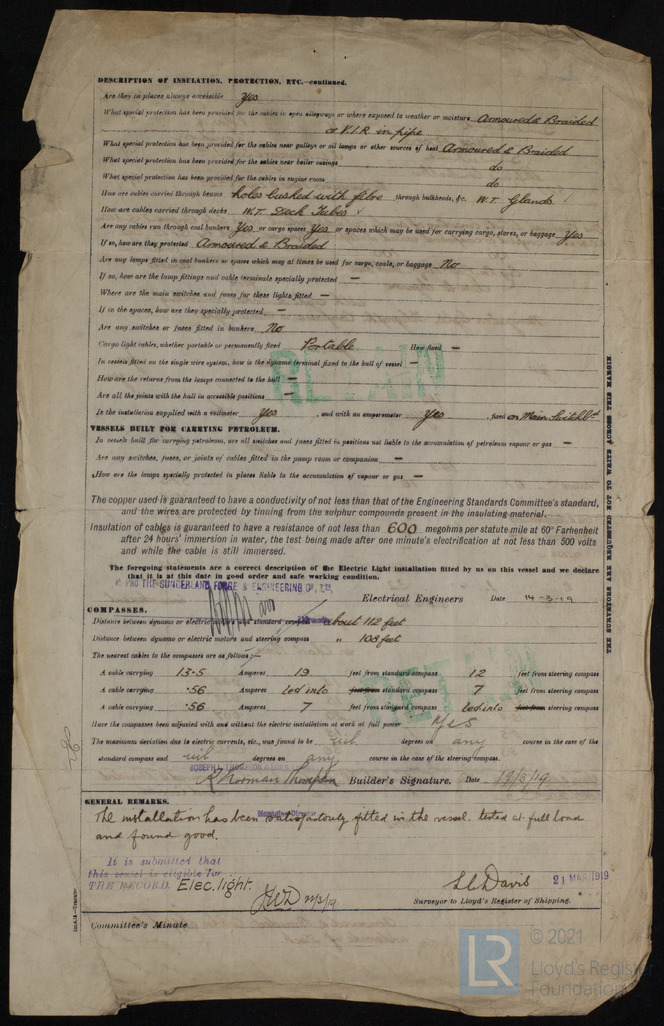 DESCRIPTION OF INSULATION, PROTECTION, ETC.—continued.
Are they in places always accessible Yes
What special protection has been provided for the cables in open alleyways or where exposed to weather or moisture Armoured & Braided
or V.I.R in pipe
What special protection has been provided for the cables near galleys or oil lamps or other sources of heat Armoured & Braided
What special protection has been provided for the cables near boiler casings do
What special protection has been provided for the cables in engine room do
How are cables carried through beams holes bushed with fibre through bulkheads, &c. W.T. Glands
How are cables carried through decks W.T. Deck Tubes
Are any cables run through coal bunkers Yes or cargo spaces Yes or spaces which may be used for carrying cargo, stores, or baggage Yes
If so, how are they protected Armoured & Braided
Are any lamps fitted in coal bunkers or spaces which may at times be used for cargo, coals, or baggage No
If so, how are the lamp fittings and cable terminals specially protected —
Where are the main switches and fuses for these lights fitted —
If in the spaces, how are they specially protected —
Are any switches or fuses fitted in bunkers No
Cargo light cables, whether portable or permanently fixed Portable How fixed —
In vessels fitted on the single wire system, how is the dynamo terminal fixed to the hull of vessel —
How are the returns from the lamps connected to the hull —
Are all the joints with the hull in accessible positions —
Is the installation supplied with a voltmeter Yes , and with an amperemeter Yes , fixed on Main Switchbd
VESSELS BUILT FOR CARRYING PETROLEUM.
In vessels built for carrying petroleum, are all switches and fuses fitted in positions not liable to the accumulation of petroleum vapour or gas —
Are any switches, fuses, or joints of cables fitted in the pump room or companion —
How are the lamps specially protected in places liable to the accumulation of vapour or gas —
The copper used is guaranteed to have a conductivity of not less than that of the Engineering Standards Committee's standard,
and the wires are protected by tinning from the sulphur compounds present in the insulating material.
Insulation of cables is guaranteed to have a resistance of not less than 600 megohms per statute mile at 60° Farhenheit
after 24 hours' immersion in water, the test being made after one minute's electrification at not less than 500 volts
and while the cable is still immersed.
The foregoing statements are a correct description of the Electric Light installation fitted by us on this vessel and we declare
that it is at this date in good order and safe working condition.
PRO THE SUNDERLAND FORGE & ENGINEERING Co., Ltd.
Electrical Engineers Date 14-3-19
COMPASSES.
Distance between dynamo or electric motors and standard compass about 112 feet
Distance between dynamo or electric motors and steering compass " 108 feet
The nearest cables to the compasses are as follows:—
A cable carrying 13.5 Amperes 19 feet from standard compass 12 feet from steering compass
A cable carrying .56 Amperes led into feet from standard compass 7 feet from steering compass
A cable carrying .56 Amperes 7 feet from standard compass led into feet from steering compass
Have the compasses been adjusted with and without the electric installation at work at full power Yes
The maximum deviation due to electric currents, etc., was found to be nil degrees on any course in the case of the
standard compass and nil degrees on any course in the case of the steering compass.
JOSEPH L. THOMPSON & SONS
R Norman Thompson Builder's Signature. Date 19/3/19
Managing Director
GENERAL REMARKS.
The installation has been satisfactorily fitted in the vessel. tested at full load
and found good.
It is submitted that
this vessel is eligible for
THE RECORD. Elec. light.
JWD 22/3/19
L.C. Davis 21 MAR 1919
Surveyor to Lloyd's Register of Shipping.
Committee's Minute
THE SURVEYORS ARE REQUESTED NOT TO WRITE ACROSS THE MARGIN
RETAIN
RETAIN
LR
© 2021
Lloyd's Register
Foundation